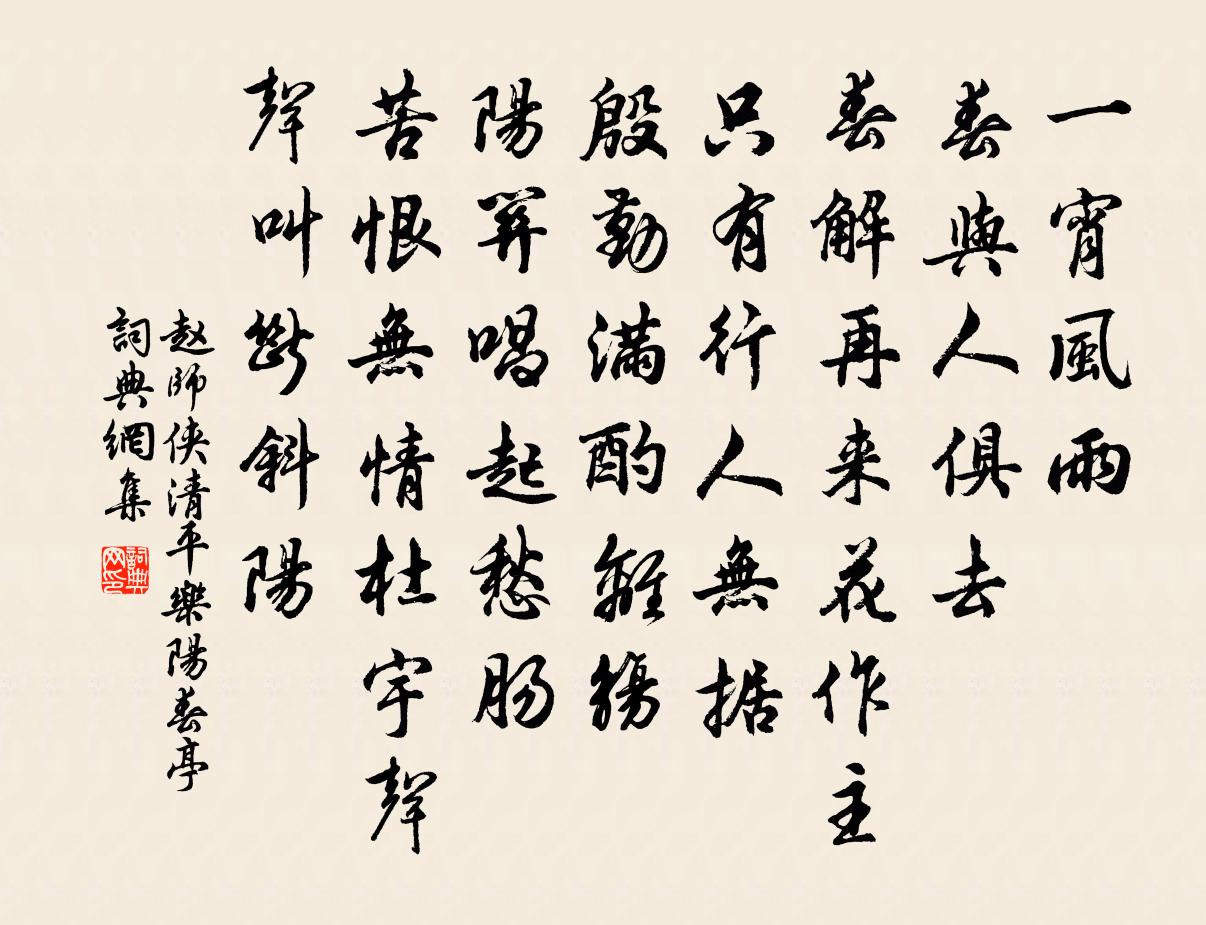 一宵風雨
春與人俱去
春解再来花作主
只有行人無据
殷勤满酌離觴
陽关唱起愁腸
苦恨無情杜宇聲
聲叫斷斜陽
赵師侠清平樂陽春亭
詞典網集
詞典网印